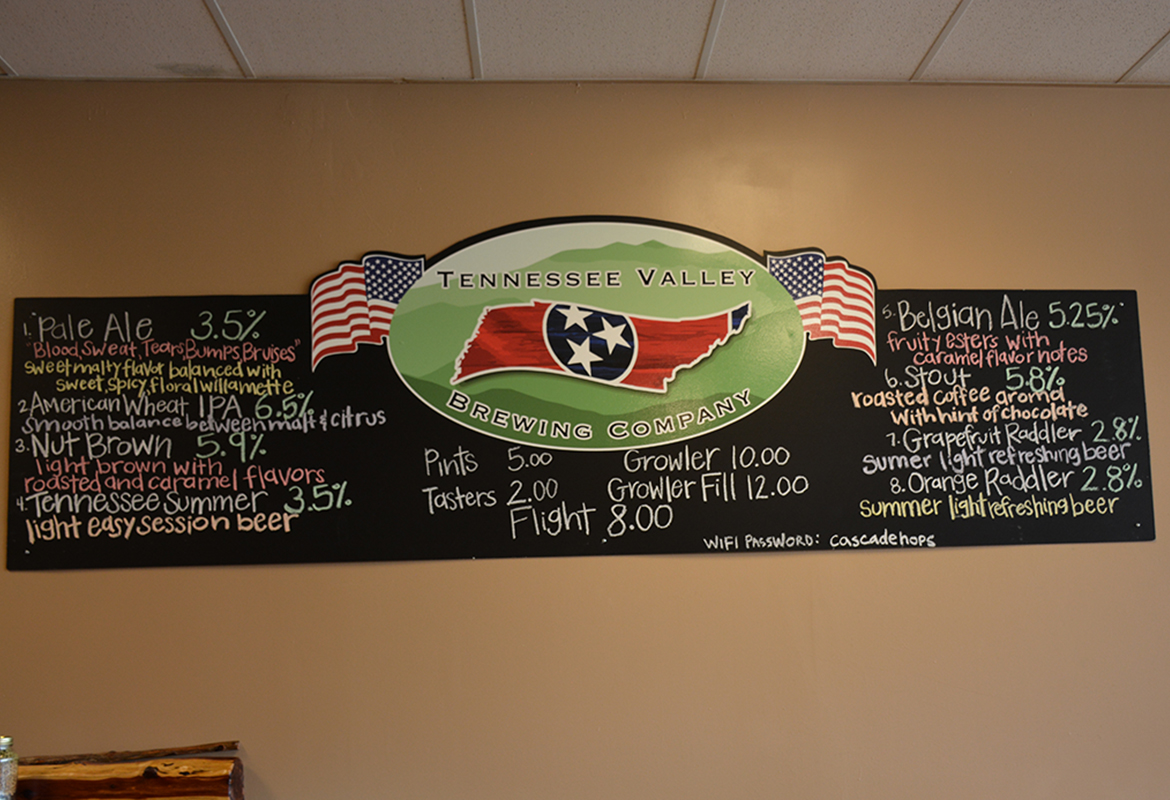 TENNESSEE VALLEY
BREWING COMPANY
1. Pale Ale 3.5%
"Blood, Sweat, Tears, Bumps, Bruises"
sweet malty flavor balanced with
sweet, spicy, floral willamette
2. American Wheat IPA 6.5%
smooth balance between malt & citrus
3. Nut Brown 5.9%
light brown with
roasted and caramel flavors
4. Tennessee Summer 3.5%
light easy session beer
Pints 5.00
Tasters 2.00
Growler 10.00
Growler Fill 12.00
Flight 8.00
WIFI PASSWORD: cascadehops
5. Belgian Ale 5.25%
fruity esters with
caramel flavor notes
6. Stout 5.8%
roasted coffee aroma
with hint of chocolate
7. Grapefruit Raddler 2.8%
sumer light refreshing beer
8. Orange Raddler 2.8%
summer light refreshing beer